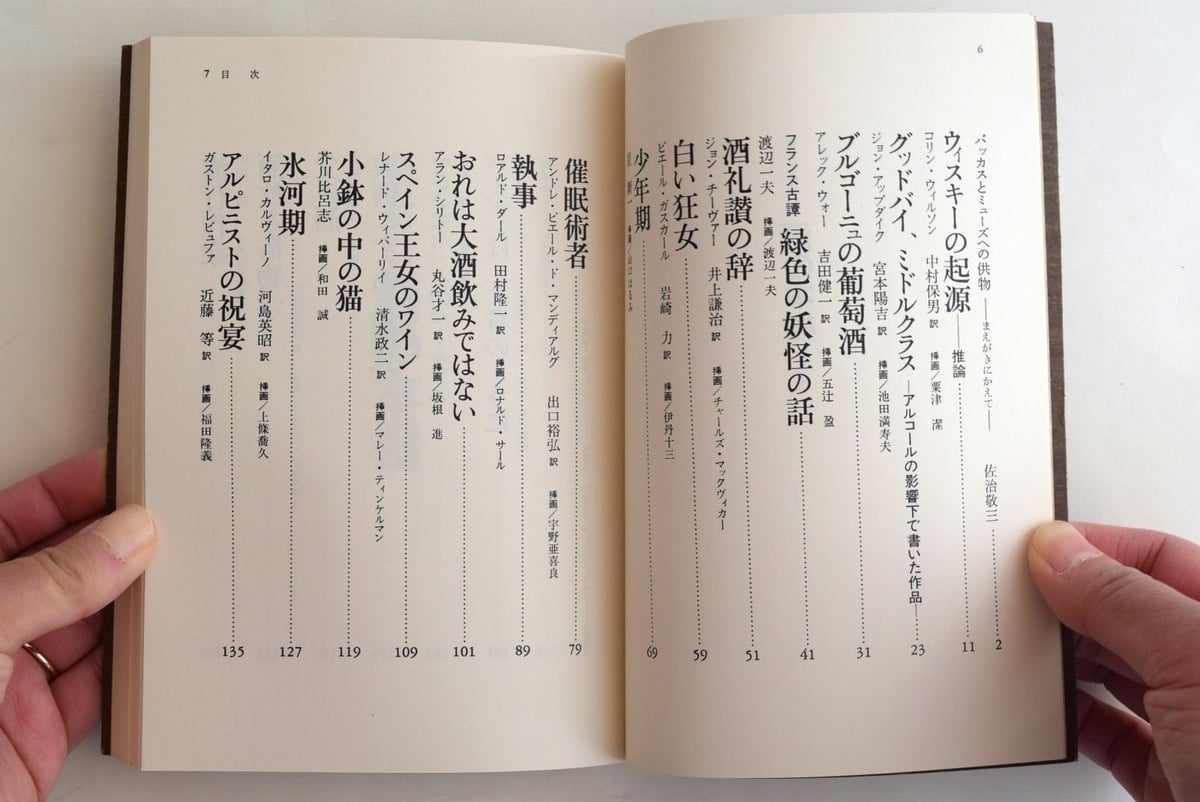 6
バッカスとミューズへの供物 ――まえがきにかえて―― 佐治敬三 2
ウィスキーの起源――推論 11
コリン・ウィルソン 中村保男 訳 挿画/粟津 潔
グッドバイ、ミドルクラス ―アルコールの影響下で書いた作品― 23
ジョン・アップダイク 宮本陽吉 訳 挿画/池田満寿夫
ブルゴーニュの葡萄酒 31
アレック・ウォー 吉田健一 訳 挿画/五辻 盈
フランス古譚 緑色の妖怪の話 41
渡辺一夫 挿画/渡辺一夫
酒礼讃の辞 51
ジョン・チーヴァー 井上謙治 訳 挿画/チャールズ・マックヴィカー
白い狂女 59
ピエール・ガスカール 岩崎 力 訳 挿画/伊丹十三
少年期 69
挿画/山口はるみ
7 目 次
催眠術者 79
アンドレ・ピエール・ド・マンディアルグ 出口裕弘 訳 挿画/宇野亜喜良
執事 89
ロアルド・ダール 田村隆一 訳 挿画/ロナルド・サール
おれは大酒飲みではない 101
アラン・シリトー 丸谷才一 訳 挿画/坂根 進
スペイン王女のワイン 109
レナード・ウィバーリイ 清水政二 訳 挿画/マレー・ティンケルマン
小鉢の中の猫 119
芥川比呂志 挿画/和田 誠
氷河期 127
イタロ・カルヴィーノ 河島英昭 訳 挿画/上條喬久
アルピニストの祝宴 135
ガストン・レビュファ 近藤 等 訳 挿画/福田隆義